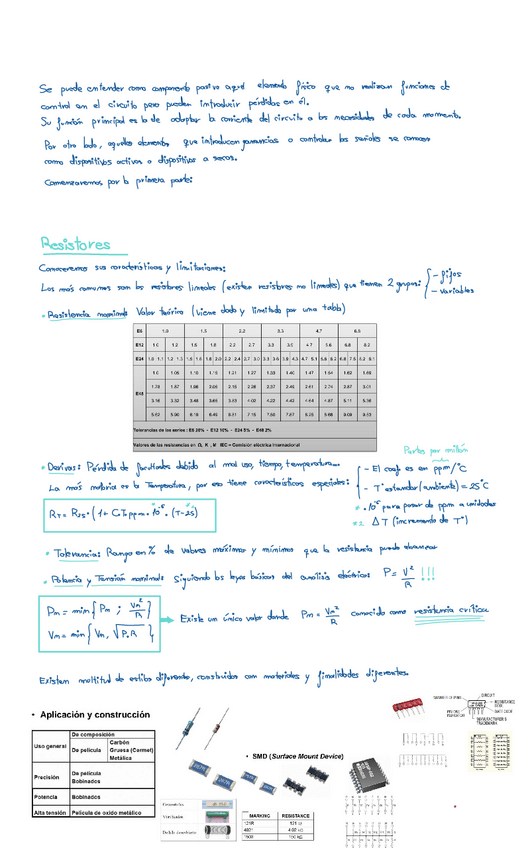 Se puede entender como componente pasivo aquel elemento físico que no realizan funciones de
control en el circuito pero pueden introducir pérdidas en él.
Su función principal es la de adaptar la corriente del circuito a las necesidades de cada momento.
Por otro lado, aquellos elementos que introducen ganancias o controlan las señales se conocen
como dispositivos activos o dispositivos a secas.
Comenzaremos por la primera parte:
Resistores
Conoceremos sus características y limitaciones:
Los más comunes son los resistores lineales (existen resistores no lineales) que tienen 2 grupos:
- fijos
- variables
• Resistencia nominal: Valor teórico (viene dado y limitado por una tabla)
E6 1.0 1.5 2.2 3.3 4.7 6.8
E12 1.0 1.2 1.5 1.8 2.2 2.7 3.3 3.9 4.7 5.6 6.8 8.2
E24 1.0 1.1 1.2 1.3 1.5 1.6 1.8 2.0 2.2 2.4 2.7 3.0 3.3 3.6 3.9 4.3 4.7 5.1 5.6 6.2 6.8 7.5 8.2 9.1
E48
1.0 1.05 1.10 1.15 1.21 1.27 1.33 1.40 1.47 1.54 1.62 1.69
1.78 1.87 1.96 2.05 2.15 2.26 2.37 2.49 2.61 2.74 2.87 3.01
3.16 3.32 3.48 3.65 3.83 4.02 4.22 4.42 4.64 4.87 5.11 5.36
5.62 5.90 6.19 6.49 6.81 7.15 7.50 7.87 8.25 8.66 9.09 9.53
Tolerancias de las series : E6 20% - E12 10% - E24 5% - E48 2%
Valores de las resistencias en Ω, K , M IEC = Comisión eléctrica Internacional
Partes por millón
• Deriva: Pérdida de facultades debido al mal uso, tiempo, temperatura...
La más notoria es la Temperatura, por eso tiene características especiales:
- El coef es en ppm/°C
- T° estandar (ambiente) = 25°C
.10⁻⁶ para pasar de ppm a unidades
ΔT (incremento de T°)
R_T = R₂₅ · (1 + CT ppm · 10⁻⁶ · (T-25)
• Tolerancia: Rango en % de valores máximos y mínimos que la resistencia puede alcanzar
• Potencia y Tensión nominal: Siguiendo las leyes básicas del análisis eléctrico: P = V²/R !!!
Pm = min { Pm ; Vm²/R }
Vm = min { Vm, √P.R }
Existe un único valor donde Pm = Vm²/R conocido como resistencia crítica
Existen multitud de estilos diferente, construidos con materiales y finalidades diferentes.
• Aplicación y construcción
Uso general
De composición
De película
Carbón
Gruesa (Cermet)
Metálica
Precisión
De película
Bobinados
Potencia
Bobinados
Alta tensión
Película de oxido metálico
• SMD (Surface Mount Device)
MARKING RESISTANCE